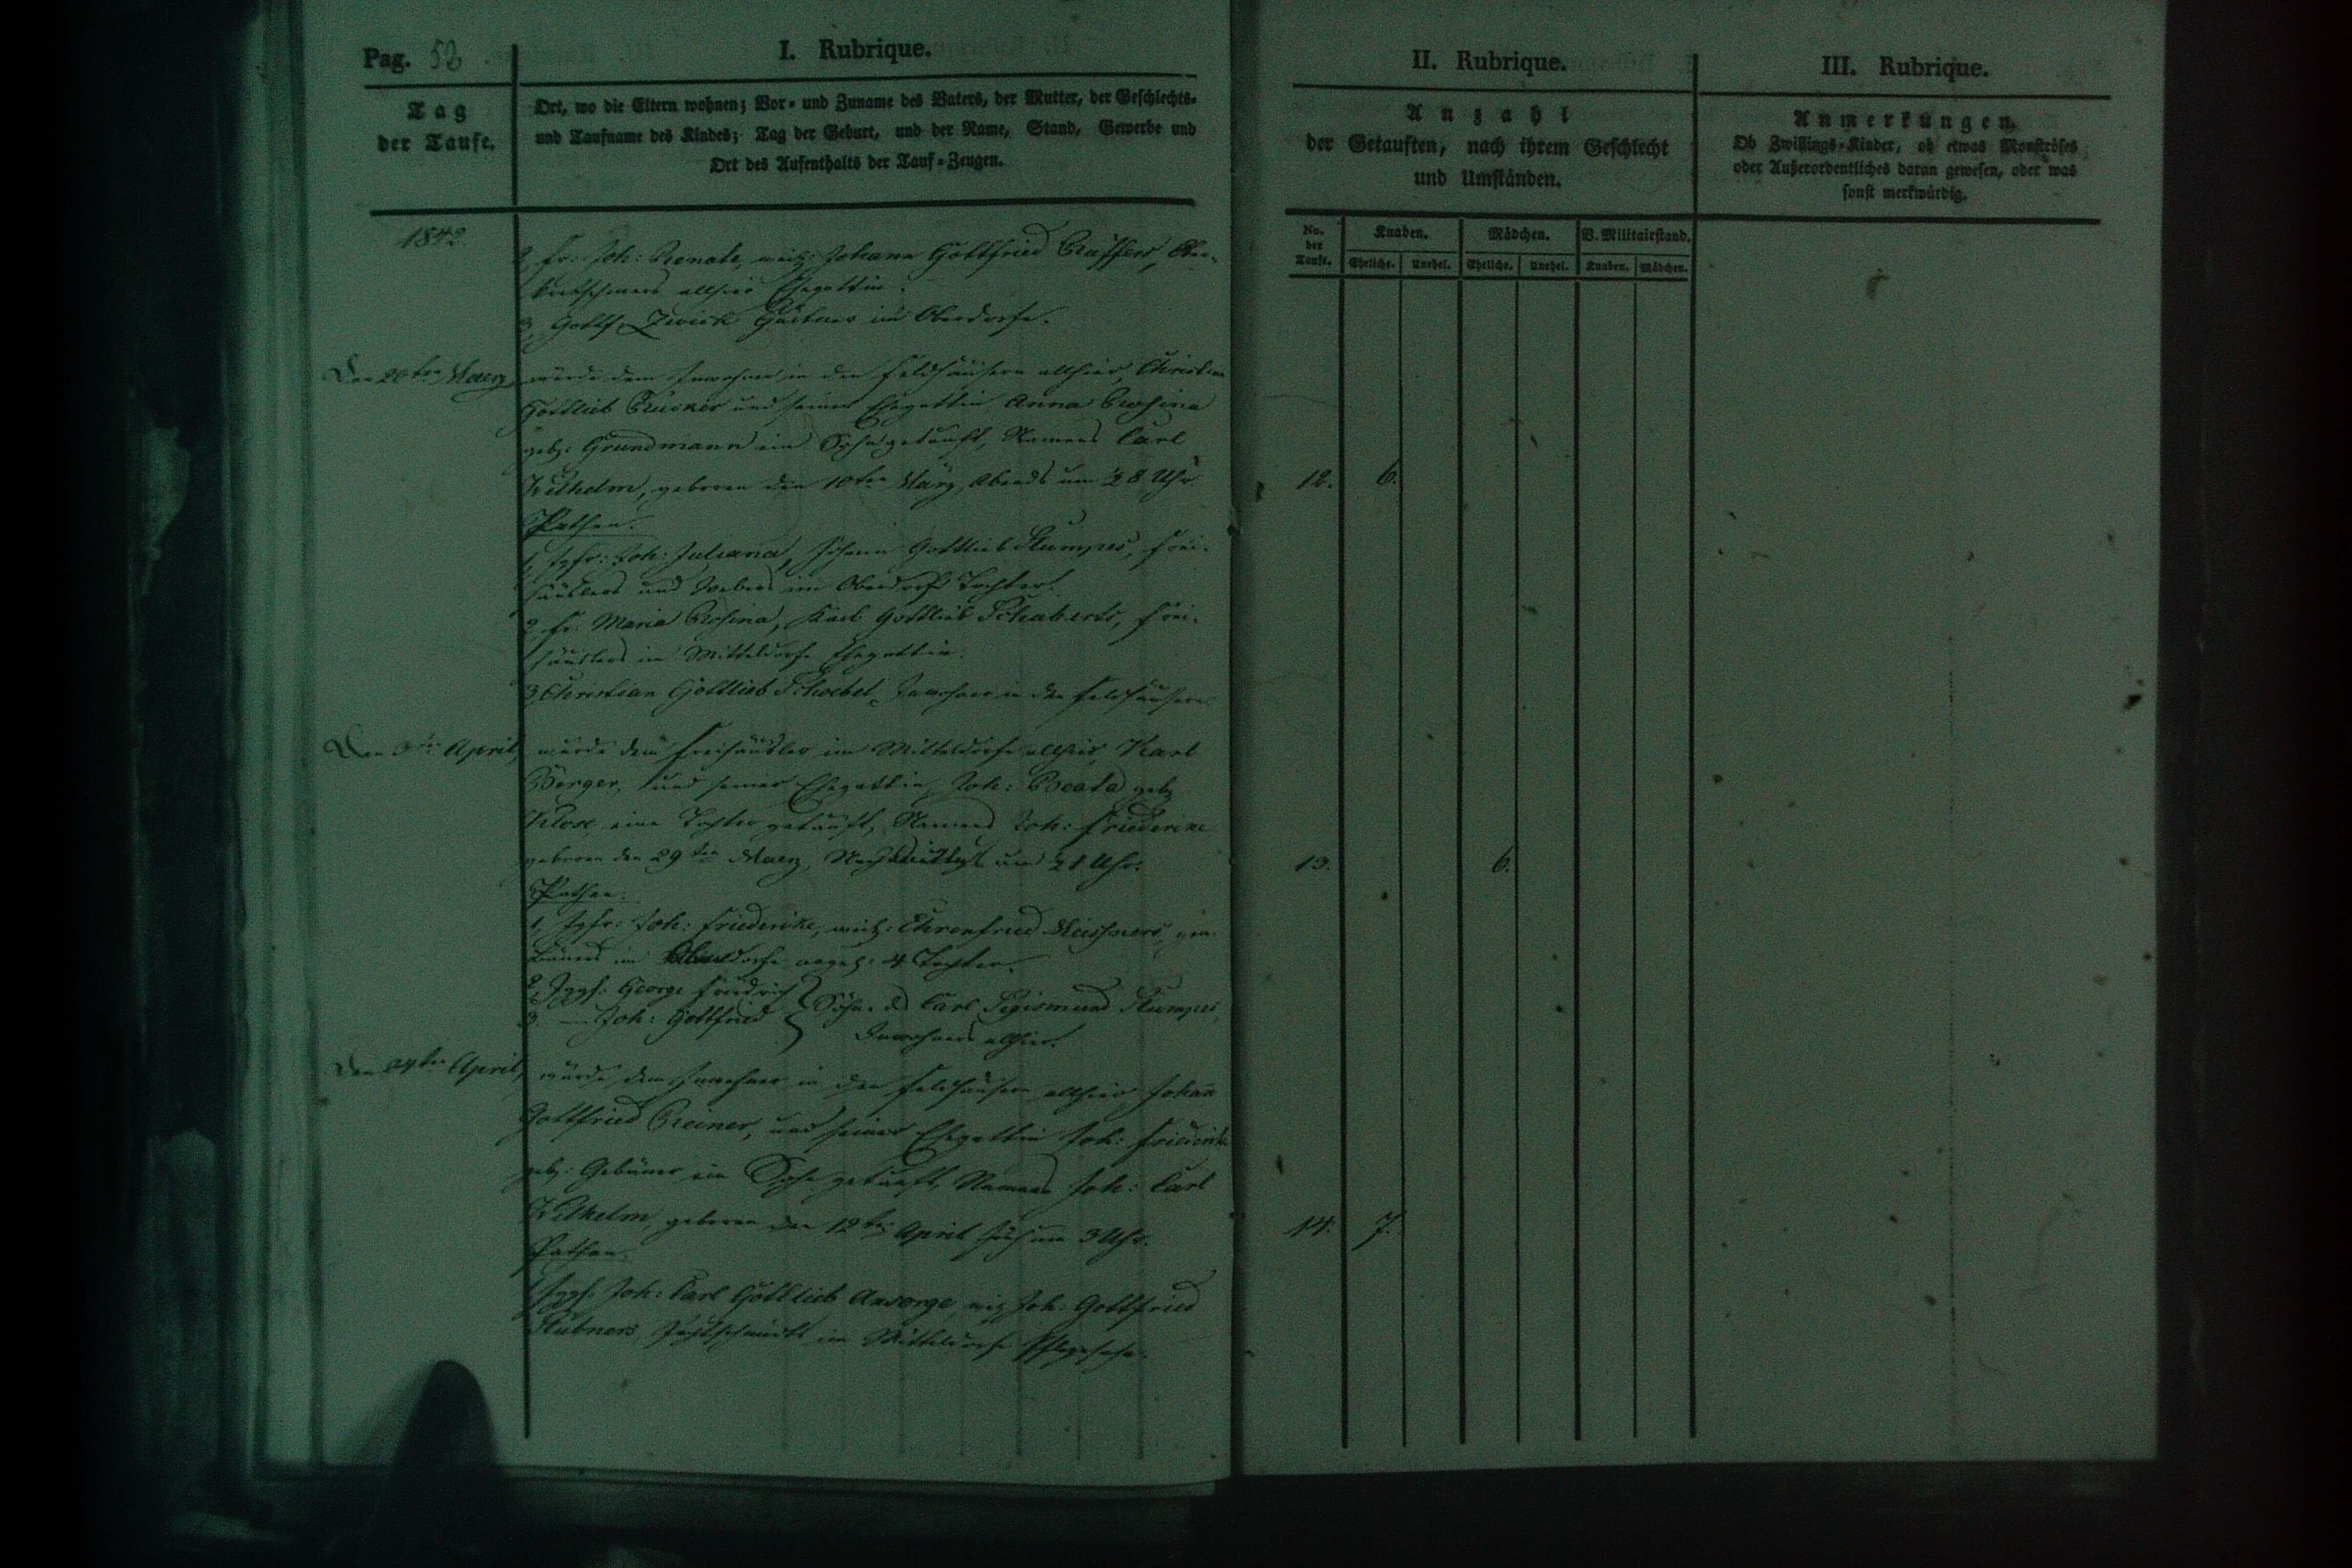 Pag. 52
I. Rubrique.
Tag
der Taufe.
Ort, wo die Eltern wohnen; Vor- und Zuname des Vaters, der Mutter, der Geschlechts-
und Taufname des Kindes; Tag der Geburt, und der Name, Stand, Gewerbe und
Ort des Aufenthalts der Tauf-Zeugen.
1842.
2, Fr. Joh: Renate, Johann Gottfried
allhier Ehegattin.
3, Gottf. Zwick Gärtner im Oberdorfe.
Den 20ten Maerz wurde dem Inwohner in den Feldhäusern allhier, Christian
Gottlieb und seiner Ehegattin Anna Rosina
geb: Grundmann ein Sohn getauft, Namens Carl
Wilhelm, geboren den 10ten März, Abends um 8 Uhr.
Pathen.
1, Jgfr: Joh: Juliana, Johann Gottlieb Frei-
häuslers und Webers im Oberdorfe Tochter.
2, Fr. Maria Rosina, Karl Gottlieb Schuberts, Frei-
häuslers im Mitteldorfe Ehegattin.
3, Christian Gottlieb Inwohner in den Feldhäusern.
Den 3ten April, wurde dem Freihäusler im Mitteldorfe allhier, Karl
Berger, und seiner Ehegattin, Joh: Beata geb.
Klose, eine Tochter getauft, Namens Joh: Friederike
geboren den 29ten Maerz, Nachmittags um Uhr.
Pathen.
1, Jgfr: Joh: Friederike, Ehrenfried
im Tochter.
2, Jggs. George Friedrich
3, — Joh: Gottfried } Söhne des Carl Sigismund
Inwohners allhier.
Den 24ten April, wurde dem Inwohner in den Feldhäusern allhier Johann
Gottfried Reiner, und seiner Ehegattin Joh: Friederike
geb: Gebauer ein Sohn getauft, Namens Joh: Carl
Wilhelm, geboren den 12ten April früh um 3 Uhr.
Pathen.
1, Jggs. Joh: Carl Gottlieb Ansorge, Joh: Gottfried
im Mitteldorfe Pflegesohn.
II. Rubrique.
Anzahl
der Getauften, nach ihrem Geschlecht
und Umständen.
No. der Taufe. Knaben. Mädchen. V. Militairstand.
Eheliche. Unehel. Eheliche. Unehel. Knaben. Mädchen.
12. 6.
13. 6.
14. 7.
III. Rubrique.
Anmerkungen.
Ob Zwillings-Kinder, ob etwas Monströses
oder Außerordentliches daran gewesen, oder was
sonst merkwürdig.